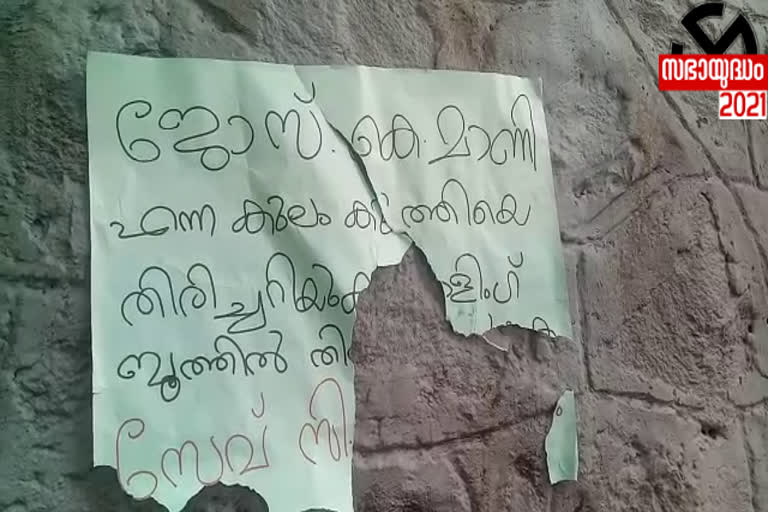 സഭായുദ്ധം
2021
ജോസ്. കെ. മാണി
എന്ന കുലം കുത്തിയെ
തിരിച്ചറിയുക
ബൂത്തിൽ
സേവ് സി.